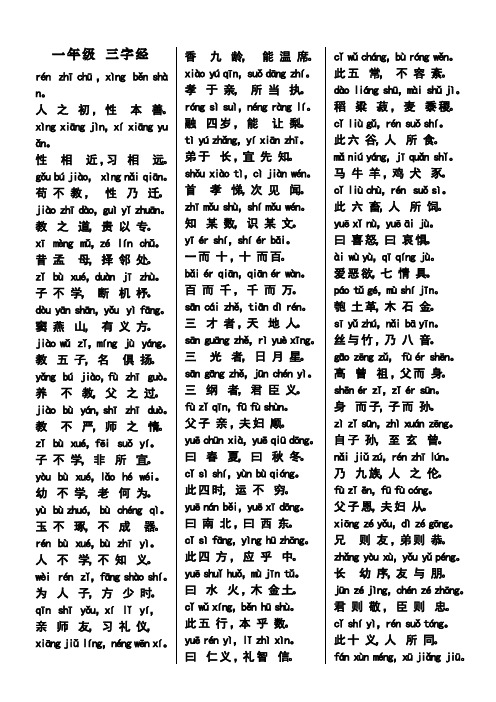 一年级 三字经
rén zhī chū , xìng běn shà
n。
人 之 初, 性 本 善。
xìng xiāng jìn, xí xiāng yu
ǎn。
性 相 近,习 相 远。
gǒu bú jiào, xìng nǎi qiān。
苟 不 教, 性 乃 迁。
jiào zhī dào, guì yǐ zhuān。
教 之 道, 贵 以 专。
xī mèng mǔ, zé lín chǔ。
昔 孟 母, 择 邻 处。
zǐ bù xué, duàn jī zhù。
子 不 学, 断 机 杼。
dòu yān shān, yǒu yì fāng。
窦 燕 山, 有 义 方。
jiào wǔ zǐ, míng jù yáng。
教 五 子, 名 俱 扬。
yǎng bú jiào, fù zhī guò。
养 不 教, 父 之 过。
jiào bù yán, shī zhī duò。
教 不 严, 师 之 惰。
zǐ bù xué, fēi suǒ yí。
子 不 学, 非 所 宜。
yòu bù xué, lǎo hé wéi。
幼 不 学, 老 何 为。
yù bù zhuó, bù chéng qì。
玉 不 琢, 不 成 器。
rén bù xué, bù zhī yì。
人 不 学, 不 知 义。
wèi rén zǐ, fāng shào shí。
为 人 子, 方 少 时。
qīn shī yǒu, xí lǐ yí,
亲 师 友, 习 礼 仪,
xiāng jiǔ líng, néng wēn xí。
香 九 龄, 能 温 席。
xiào yú qīn, suǒ dāng zhí。
孝 于 亲, 所 当 执。
róng sì suì, néng ràng lí。
融 四岁, 能 让 梨。
tì yú zhǎng, yí xiān zhī。
弟于 长, 宜 先 知。
shǒu xiào tì, cì jiàn wén。
首 孝 悌,次 见 闻。
zhī mǒu shù, shí mǒu wén。
知 某 数, 识 某 文。
yī ér shí, shí ér bǎi。
一而 十,十 而百。
bǎi ér qiān, qiān ér wàn。
百 而 千, 千 而 万。
sān cái zhě, tiān dì rén。
三 才者, 天 地 人。
sān guāng zhě, rì yuè xīng。
三 光 者, 日 月 星。
sān gāng zhě, jūn chén yì。
三 纲 者, 君 臣 义。
fù zǐ qīn, fū fù shùn。
父子 亲,夫妇 顺。
yuē chūn xià, yuē qiū dōng。
曰 春 夏, 曰 秋 冬。
cǐ sì shí, yùn bù qióng。
此四时, 运 不 穷。
yuē nán běi, yuē xī dōng。
曰 南 北,曰 西 东。
cǐ sì fāng, yìng hū zhōng。
此 四 方, 应 乎 中。
yuē shuǐ huǒ, mù jīn tǔ。
曰 水 火,木 金土。
cǐ wǔ xíng, běn hū shù。
此 五 行,本 乎 数。
yuē rén yì, lǐ zhì xìn。
曰 仁义,礼智 信。
cǐ wǔ cháng, bù róng wěn。
此五 常, 不 容 紊。
dào liáng shū, mài shǔ jì。
稻 粱 菽, 麦 黍稷。
cǐ liù gǔ, rén suǒ shí。
此 六 谷, 人 所 食。
mǎ niú yáng, jī quǎn shǐ。
马 牛 羊, 鸡 犬 豕。
cǐ liù chù, rén suǒ sì。
此 六 畜, 人 所 饲。
yuē xǐ nù, yuē āi jù。
曰 喜怒,曰 哀惧。
ài wù yù, qī qíng jù。
爱恶欲,七 情 具。
páo tǔ gé, mù shí jīn。
匏 土革,木 石 金。
sī yǔ zhú, nǎi bā yīn。
丝与竹, 乃 八 音。
gāo zēng zǔ, fù ér shēn。
高 曾 祖,父而 身。
shēn ér zǐ, zǐ ér sūn。
身 而子,子而 孙。
zì zǐ sūn, zhì xuán zēng。
自子 孙, 至 玄 曾。
nǎi jiǔ zú, rén zhī lún。
乃 九族,人 之 伦。
fù zǐ ēn, fū fù cóng。
父子恩,夫妇 从。
xiōng zé yǒu, dì zé gōng。
兄 则 友,弟 则 恭。
zhǎng yòu xù, yǒu yǔ péng。
长 幼 序,友 与 朋。
jūn zé jìng, chén zé zhōng。
君 则 敬, 臣 则 忠。
cǐ shí yì, rén suǒ tóng。
此 十 义,人 所 同。
fán xùn méng, xū jiǎng jiū。